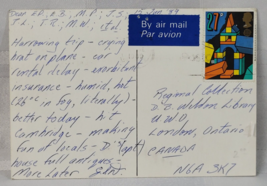 By air mail
Par avion
Harrowing trip - crying
brat on plane - car
rental delay - exorbitant
insurance - humid, hot
(26°C in fog, literally) -
better today - hit
Cambridge - making
fun of locals - D
house full antiques -
More Later
Regional Collection
D.B. Weldon Library
U W O,
London, Ontario
CANADA
N6A 3K7